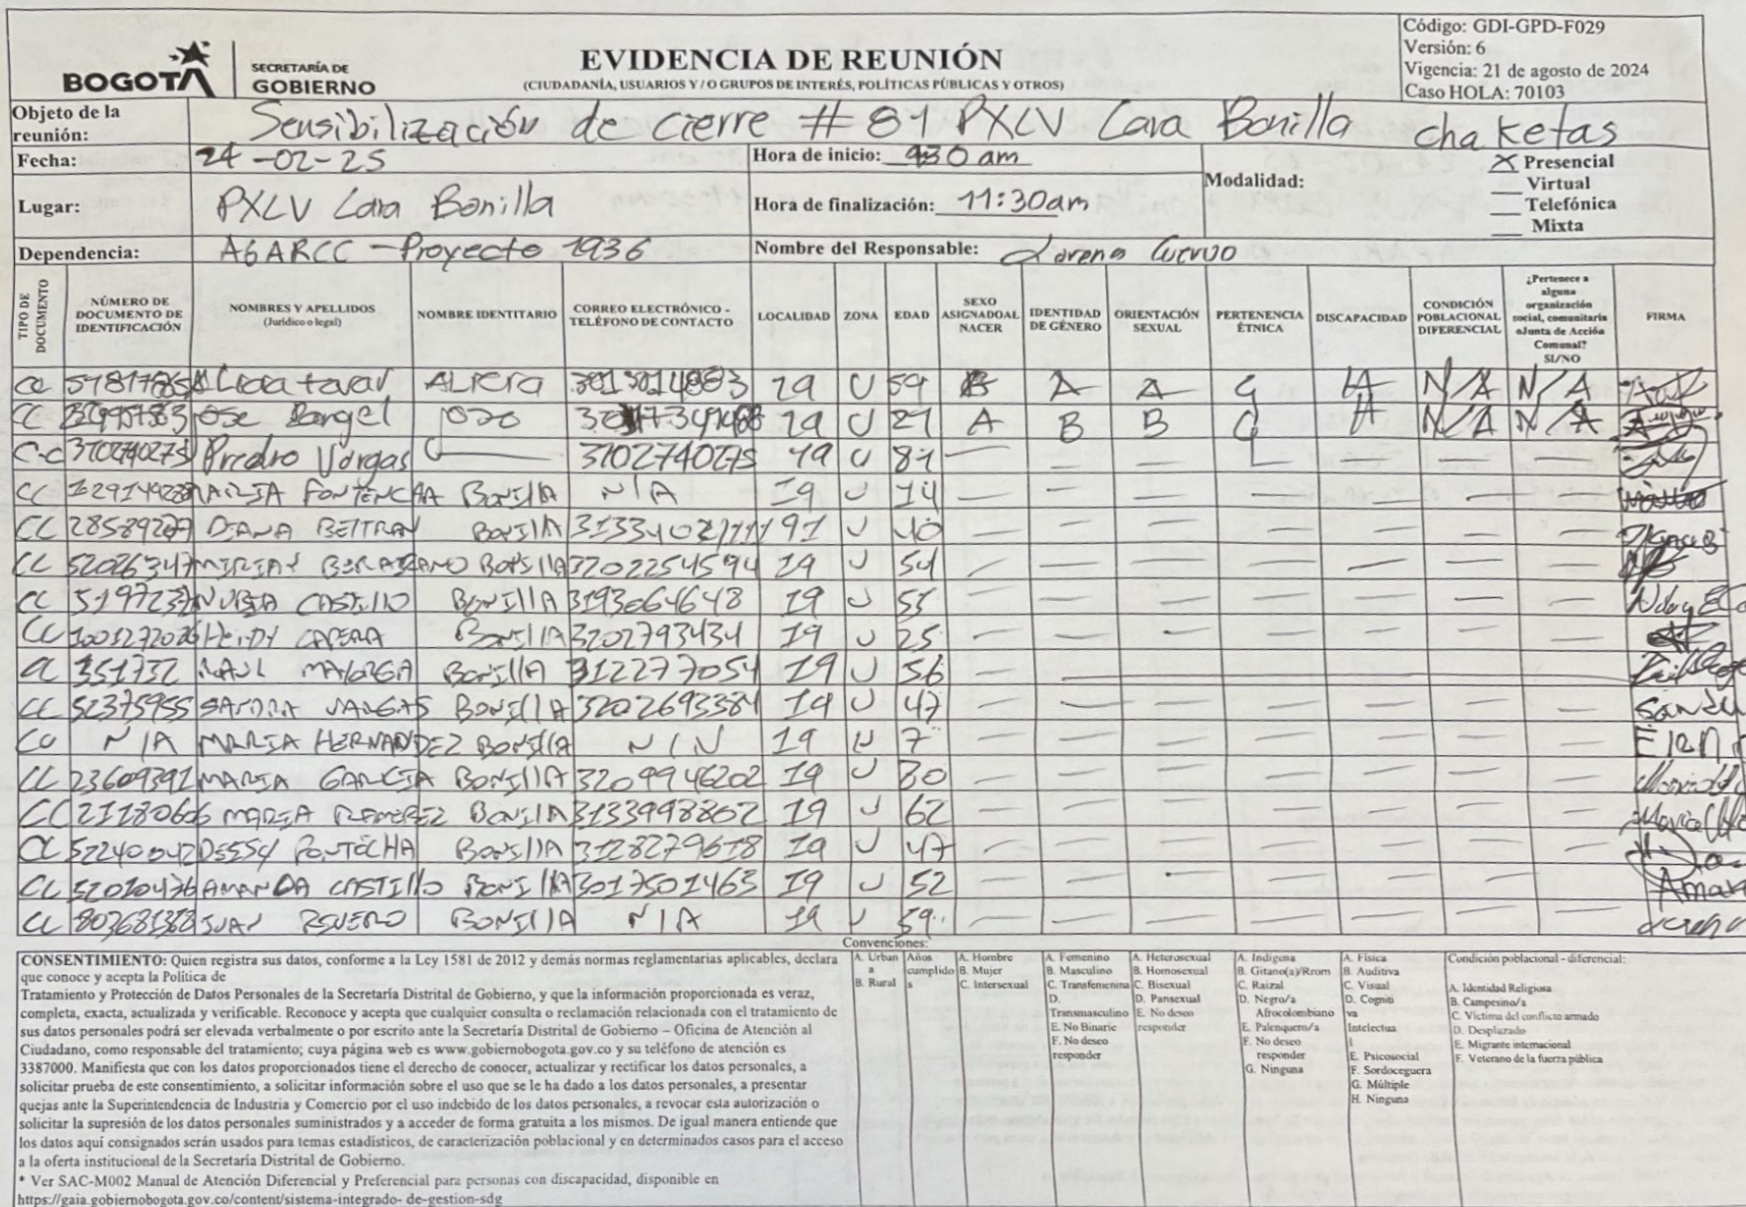 BOGOTÁ
SECRETARÍA DE
GOBIERNO
EVIDENCIA DE REUNIÓN
(CIUDADANÍA, USUARIOS Y / O GRUPOS DE INTERÉS, POLÍTICAS PÚBLICAS Y OTROS)
Código: GDI-GPD-F029
Versión: 6
Vigencia: 21 de agosto de 2024
Caso HOLA: 70103
Objeto de la reunión: Sensibilización de cierre # 81 PXLV Lara Bonilla chaketas
Fecha: 24-02-25 Hora de inicio: 930 am
Modalidad: X Presencial
Virtual
Telefónica
Mixta
Lugar: PXLV Lara Bonilla Hora de finalización: 11:30am
Dependencia: AGARCC - Proyecto 1936 Nombre del Responsable: Lorena Cuervo
TIPO DE DOCUMENTO NÚMERO DE DOCUMENTO DE IDENTIFICACIÓN NOMBRES Y APELLIDOS (Jurídico o legal) NOMBRE IDENTITARIO CORREO ELECTRÓNICO - TELÉFONO DE CONTACTO LOCALIDAD ZONA EDAD SEXO ASIGNADOAL NACER IDENTIDAD DE GÉNERO ORIENTACIÓN SEXUAL PERTENENCIA ÉTNICA DISCAPACIDAD CONDICIÓN POBLACIONAL DIFERENCIAL ¿Pertenece a alguna organización social, comunitaria oJunta de Acción Comunal? SI/NO FIRMA
CC 19 U 59 B A A G H N/A N/A
CC Rangel 19 U 21 A B B G H N/A N/A
C-C 3102740275 Predro Vargas 3102740275 19 U 81 — — — — — —
CC BONIllA N/A 19 U 14 — — — — — — —
CC DIANA BELTRAN BONIllA 91 U 40 — — — — — — —
CC 52026347 BONIllA 3202254594 19 U 54 — — — — — — —
CC NUBIA CASTILLO BONIllA 3193064648 19 U 53 — — — — — — —
CC HEIDY CAPERA BONIllA 3202793434 19 U 25 — — — — — — —
CC 351732 RAUL MAYORGA BONIllA 312277054 19 U 56 — — — — — — —
CC 52375955 SANDRA VARGAS BONIllA 3202693384 19 U 47 — — — — — — —
N/A MARIA HERNANDEZ BONIllA 19 U 7 — — — — — — —
CC 23609391 MARIA GARCIA BONIllA 3209946202 19 U 80 — — — — — — —
CC 21180606 MARIA RAMIREZ BONIllA 3133998802 19 U 62 — — — — — — —
CC 52240042 BONIllA 3128279618 19 U 47 — — — — — — —
CC 52010476 AMANDA CASTILLO BONIllA 3017501463 19 U 52 — — — — — — — Aman
CC JUAN BONIllA N/A 19 U 59 — — — — — — —
Convenciones:
CONSENTIMIENTO: Quien registra sus datos, conforme a la Ley 1581 de 2012 y demás normas reglamentarias aplicables, declara
que conoce y acepta la Política de
Tratamiento y Protección de Datos Personales de la Secretaría Distrital de Gobierno, y que la información proporcionada es veraz,
completa, exacta, actualizada y verificable. Reconoce y acepta que cualquier consulta o reclamación relacionada con el tratamiento de
sus datos personales podrá ser elevada verbalmente o por escrito ante la Secretaría Distrital de Gobierno – Oficina de Atención al
Ciudadano, como responsable del tratamiento; cuya página web es www.gobiernobogota.gov.co y su teléfono de atención es
3387000. Manifiesta que con los datos proporcionados tiene el derecho de conocer, actualizar y rectificar los datos personales, a
solicitar prueba de este consentimiento, a solicitar información sobre el uso que se le ha dado a los datos personales, a presentar
quejas ante la Superintendencia de Industria y Comercio por el uso indebido de los datos personales, a revocar esta autorización o
solicitar la supresión de los datos personales suministrados y a acceder de forma gratuita a los mismos. De igual manera entiende que
los datos aquí consignados serán usados para temas estadísticos, de caracterización poblacional y en determinados casos para el acceso
a la oferta institucional de la Secretaría Distrital de Gobierno.
* Ver SAC-M002 Manual de Atención Diferencial y Preferencial para personas con discapacidad, disponible en
https://gaia.gobiernobogota.gov.co/content/sistema-integrado- de-gestion-sdg
A. Urban
a
B. Rural
Años
cumplido
s
A. Hombre
B. Mujer
C. Intersexual
A. Femenino
B. Masculino
C. Transfemenina
D.
Transmasculino
E. No Binarie
F. No deseo
responder
A. Heterosexual
B. Homosexual
C. Bisexual
D. Pansexual
E. No deseo
responder
A. Indígena
B. Gitano(a)/Rrom
C. Raizal
D. Negro/a
Afrocolombiano
E. Palenquero/a
F. No deseo
responder
G. Ninguna
A. Física
B. Auditiva
C. Visual
D. Cogniti
va
Intelectua
l
E. Psicosocial
F. Sordoceguera
G. Múltiple
H. Ninguna
Condición poblacional - diferencial:
A. Identidad Religiosa
B. Campesino/a
C. Víctima del conflicto armado
D. Desplazado
E. Migrante internacional
F. Veterano de la fuerza pública